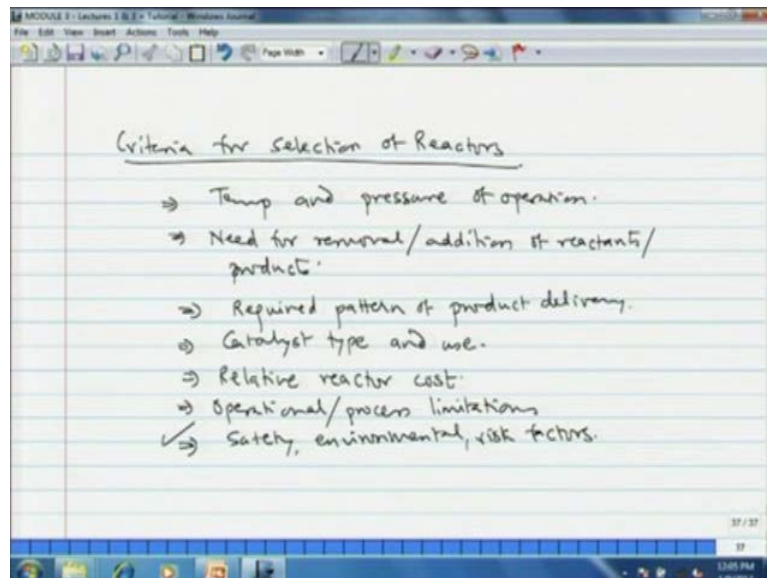 MODULE 3 - Lectures 1 & 3 + Tutorial - Windows Journal
File Edit View Insert Actions Tools Help
Page Width
Criteria for selection of Reactors
⇒ Temp and pressure of operation.
⇒ Need for removal/addition of reactants/
products.
⇒ Required pattern of product delivery.
⇒ Catalyst type and use.
⇒ Relative reactor cost.
⇒ Operational/process limitations
✓⇒ Safety, environmental, risk factors.
37 / 37
37
12:05 PM